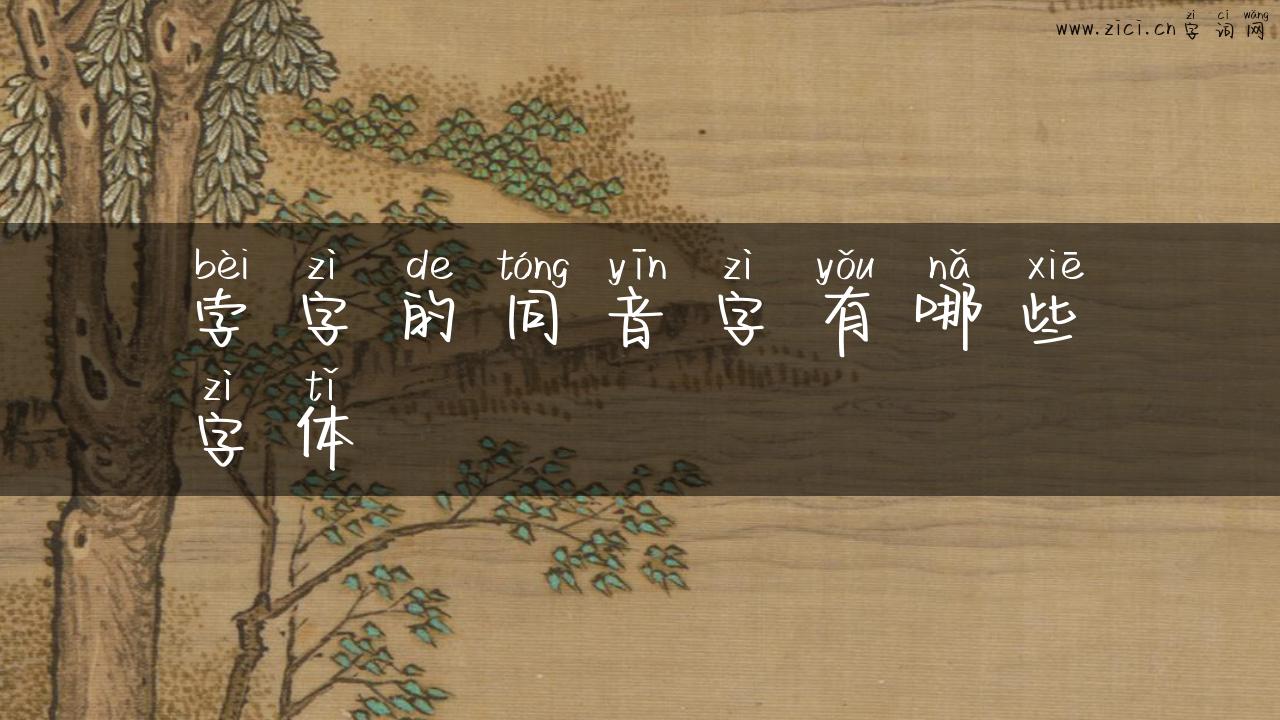 zì cí wǎng
www.zici.cn 字词网
bèi zì de tóng yīn zì yǒu nǎ xiē
孛字的同音字有哪些
zì tǐ
字体